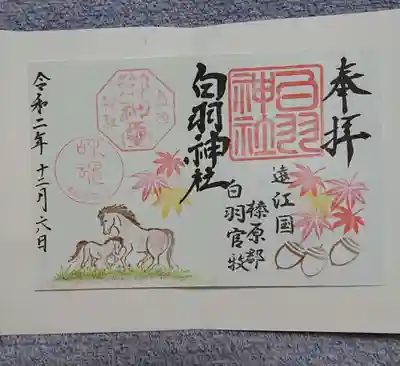 奉拝
白羽神社
遠江国
榛原郡
白羽官牧
白羽神社
令和二年十一月六日